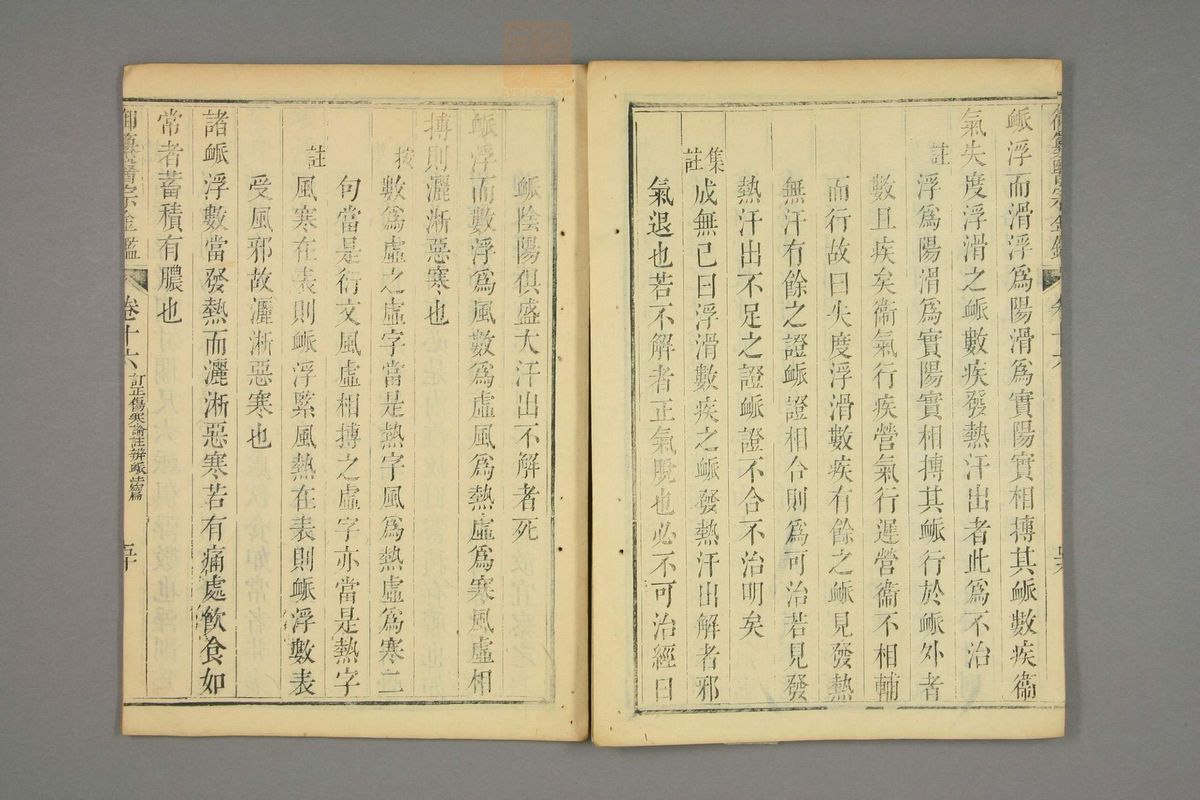 御纂醫宗金鑑
卷十六
脈浮而滑浮為陽滑為實陽實相搏其脈數疾衞
氣失度浮滑之脈數疾發熱汗出者此為不治
註
浮為陽滑為實陽實相搏其脈行於脈外者
數且疾矣衞氣行疾營氣行遲營衞不相輔
而行故曰失度浮滑數疾有餘之脈見發熱
無汗有餘之證脈證相合則為可治若見發
熱汗出不足之證脈證不合不治明矣
集註
成無己曰浮滑數疾之脈發熱汗出解者邪
氣退也若不解者正氣脫也必不可治經曰
脈陰陽俱盛大汗出不解者死
脈浮而數浮為風數為虛風為熱虛為寒風虛相
搏則灑淅惡寒也
按
數為虛之虛字當是熱字風為熱虛為寒二
句當是衍文風虛相搏之虛字亦當是熱字
註
風寒在表則脈浮緊風熱在表則脈浮數表
受風邪故灑淅惡寒也
諸脈浮數當發熱而灑淅惡寒若有痛處飲食如
常者蓄積有膿也
御纂醫宗金鑑
卷十六
訂正傷寒論註辨脈法篇